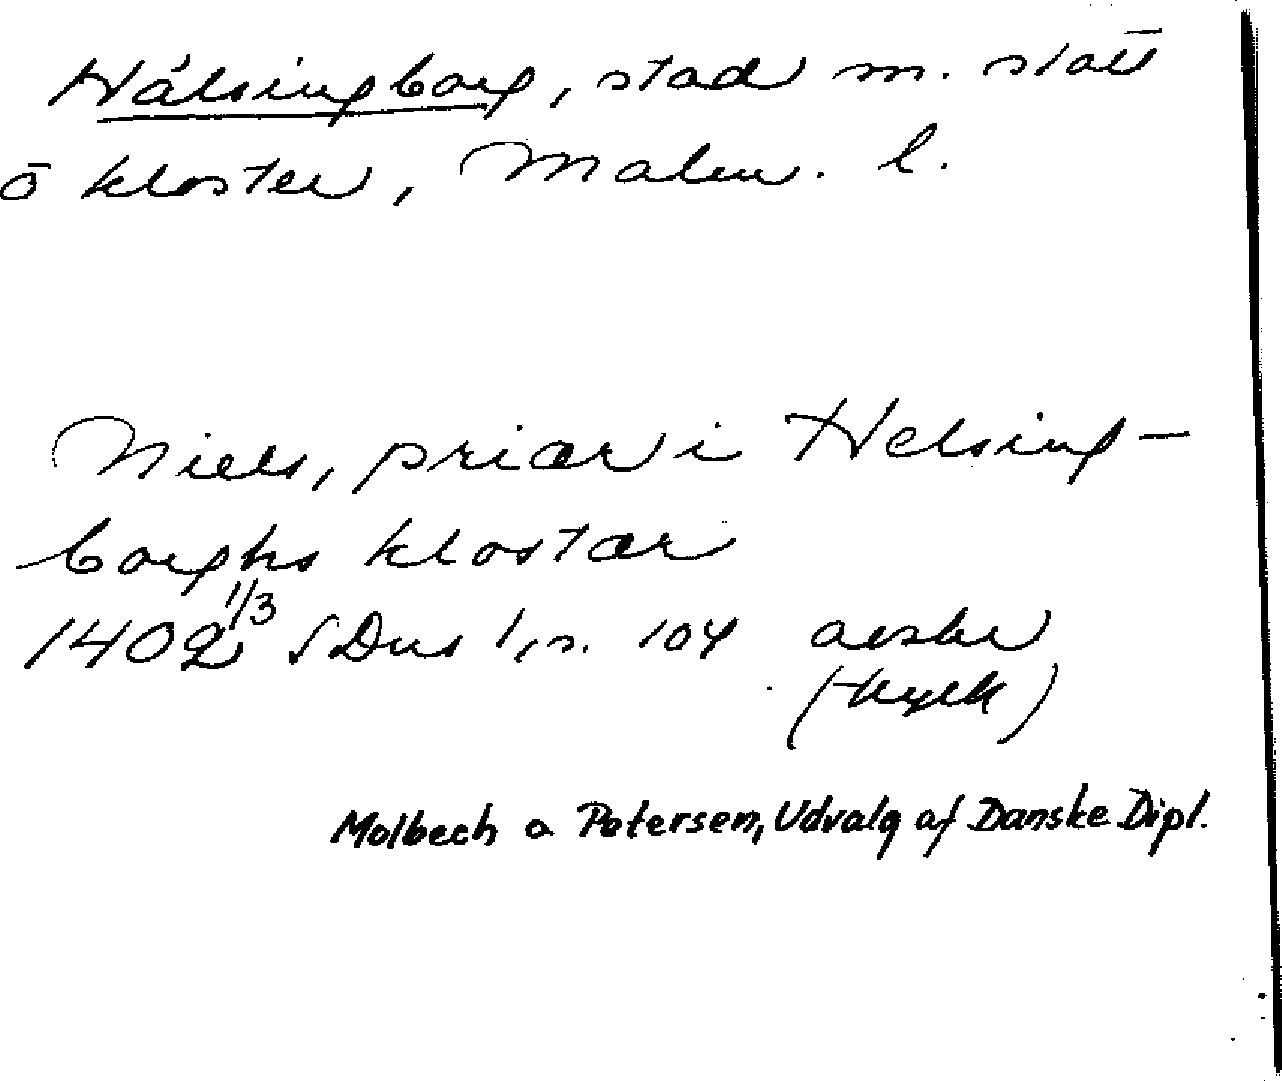 Hälsingborg, stad m. slott
o kloster, Malm. l.
Niels, priær i Helsing-
borghs klostær
1402 1/3 SDns 1, s. 104 avskr
(tryck)
Molbech o Petersen, Udvalg af Danske Dipl.